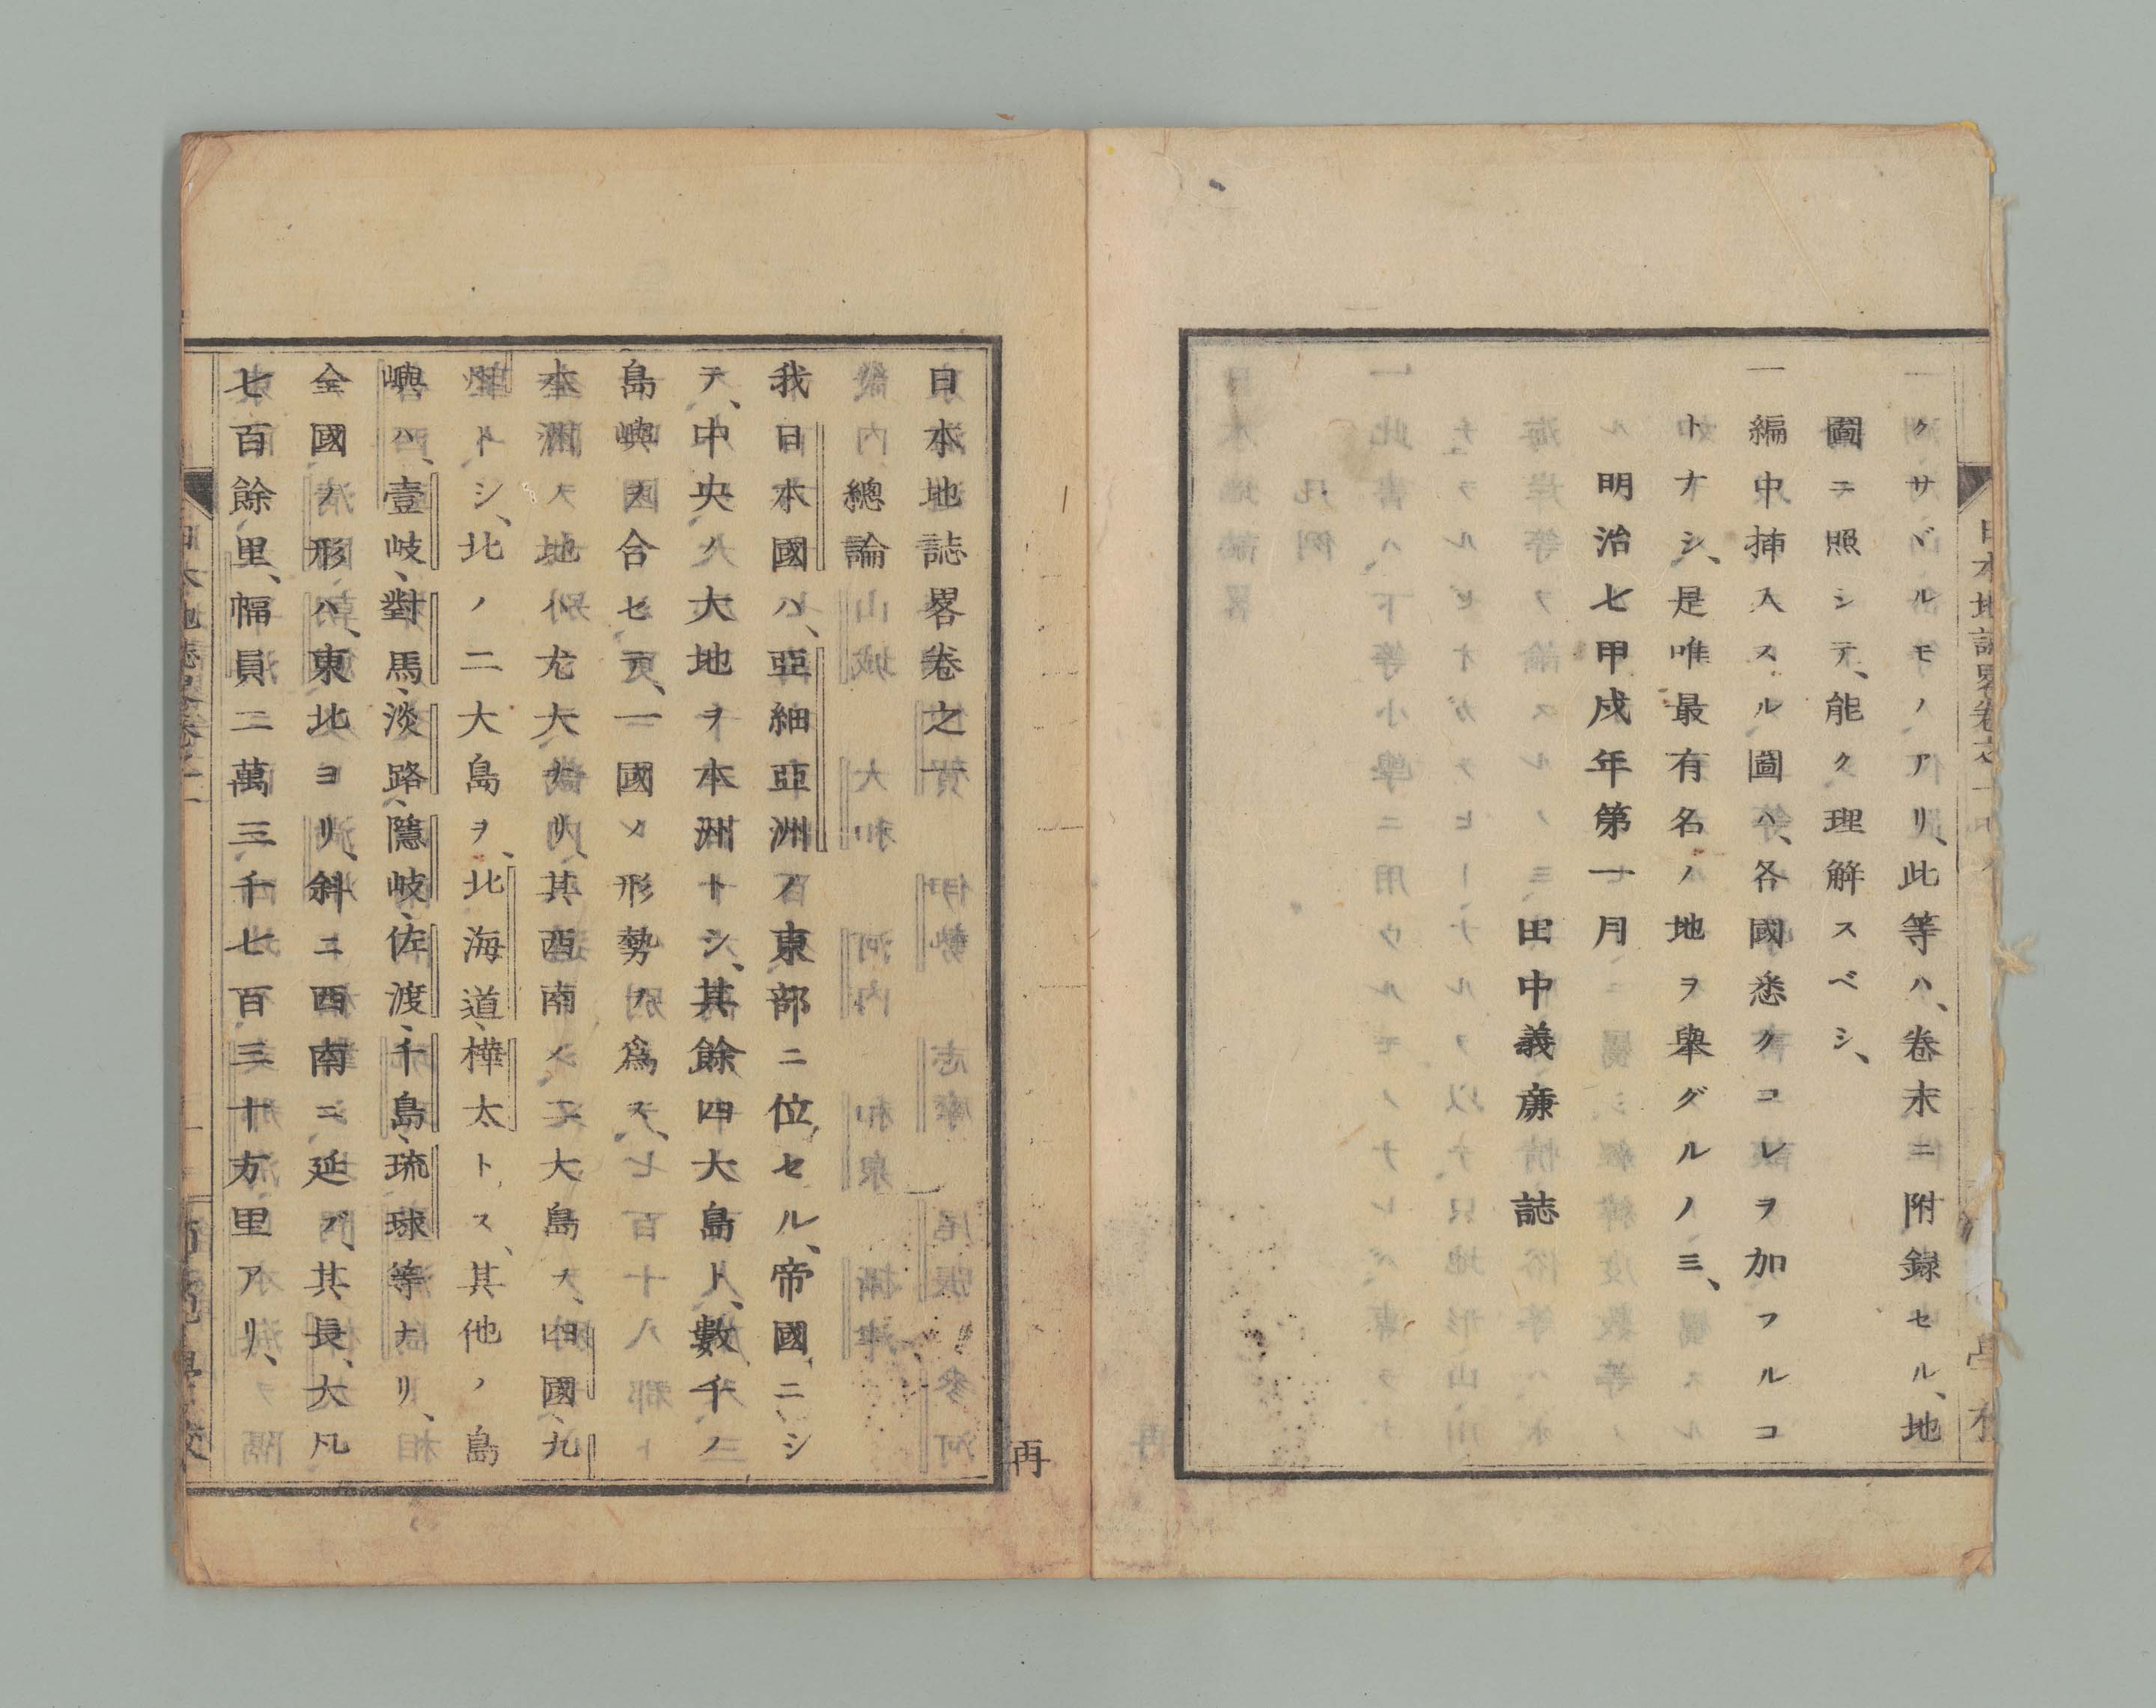 クサバルモノアリ、此等ハ、卷末ニ附録セル、地
圖ニ照シテ、能ク理解スベシ、
一編中挿入スル圖ハ、各國悉クコレヲ加フルコ
トナシ、是唯最有名ノ地ヲ擧グルノミ、
明治七甲戌年第一月
田中義廉誌
再
日本地誌畧卷之一
總論
我日本國ハ、亞細亞洲ノ東部ニ位セル、帝國ニシ
テ、中央ノ大地ヲ本州トシ、其餘四大島ト、數千ノ
島嶼ヲ合セテ、一國ノ形勢ヲ爲ス、
本洲ノ地ハ尤大ナリ、其西南ノ二大島ヲ、四國、九
トシ、北ノ二大島ヲ、北海道、樺太トス、其他ノ島
嶼ハ、壹岐、對馬、淡路、隱岐、佐渡、千島、琉球等ナリ、
全國ノ形ハ、東北ヨリ、斜ニ西南ニ延ブ、其長、大凡
七百餘里、幅員二萬三千七百三十方里アリ、